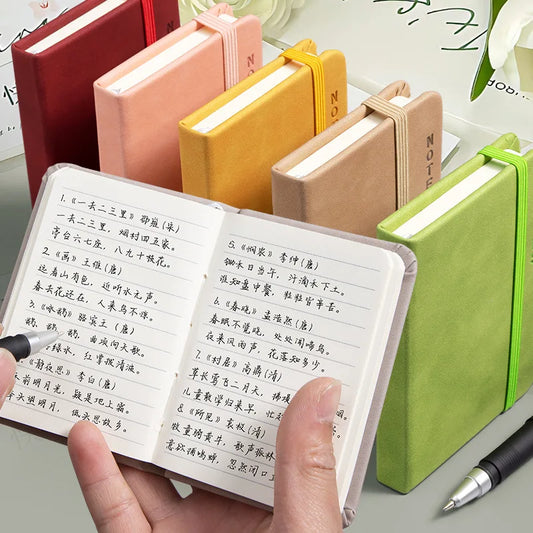 1.《一去二三里》邵雍(宋)
一去二三里，烟村四五家。
亭台六七座，八九十枝花。
2.《画》王维(唐)
远看山有色，近听水无声。
春去花还在，人来鸟不惊。
3.《咏鹅》骆宾王(唐)
鹅，鹅，鹅，曲项向天歌。
绿水，红掌拨清波。
《静夜思》李白(唐)
前明月光，疑是地上霜。
头望明月，低头思故乡。
5.《悯农》李绅(唐)
锄禾日当午，汗滴禾下土。
谁知盘中餐，粒粒皆辛苦。
6.《春晓》孟浩然(唐)
春眠不觉晓，处处闻啼鸟。
夜来风雨声，花落知多少。
7.《村居》高鼎(清)
草长莺飞二月天，拂堤
儿童散学归来早，忙
8.《所见》袁枚(清)
牧童骑黄牛，歌声振林
意欲捕鸣蝉，忽然闭口
NO
NOTE
NOTE